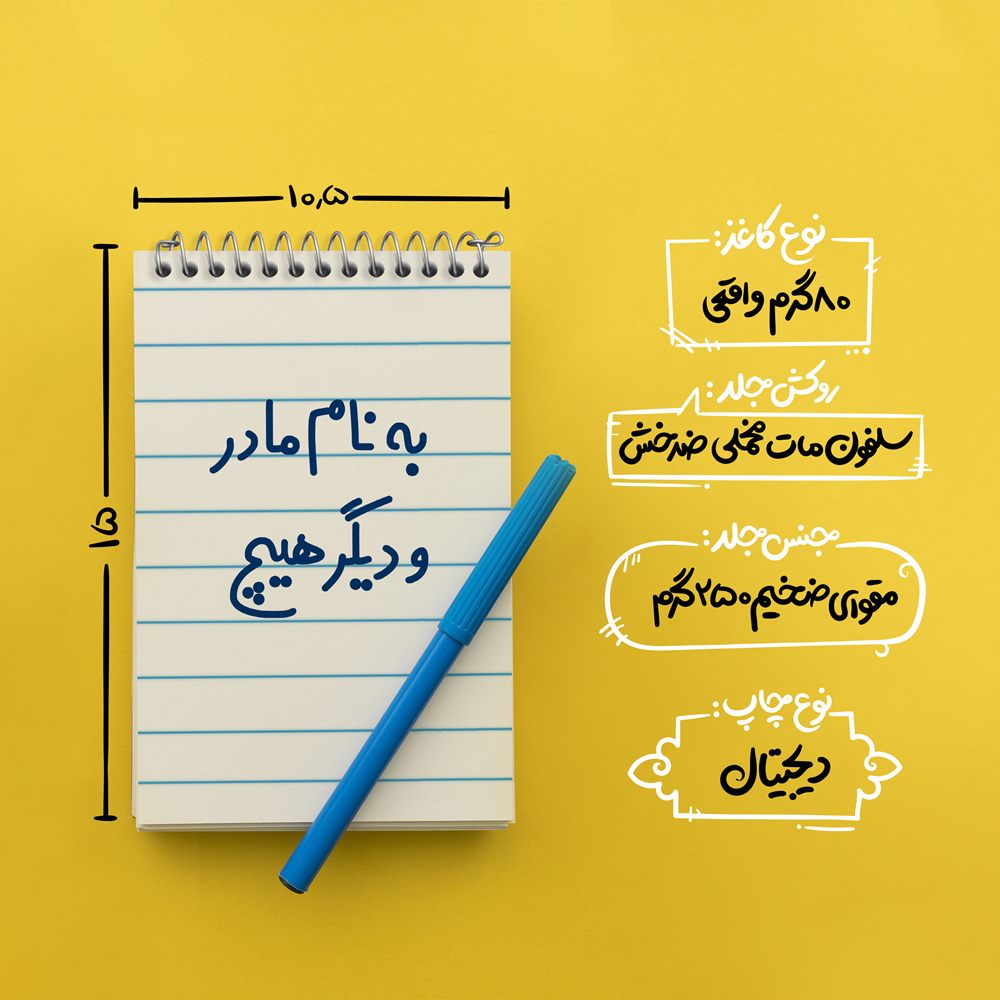 ۱۰٫۵
۱۵
به نام مادر
و دیگر هیچ
نوع کاغذ:
۸۰ گرم واقعی
روکش جلد:
سلفون مات مخملی ضدخش
جنس جلد:
مقوای ضخیم ۲۵۰ گرم
نوع چاپ:
دیجیتال